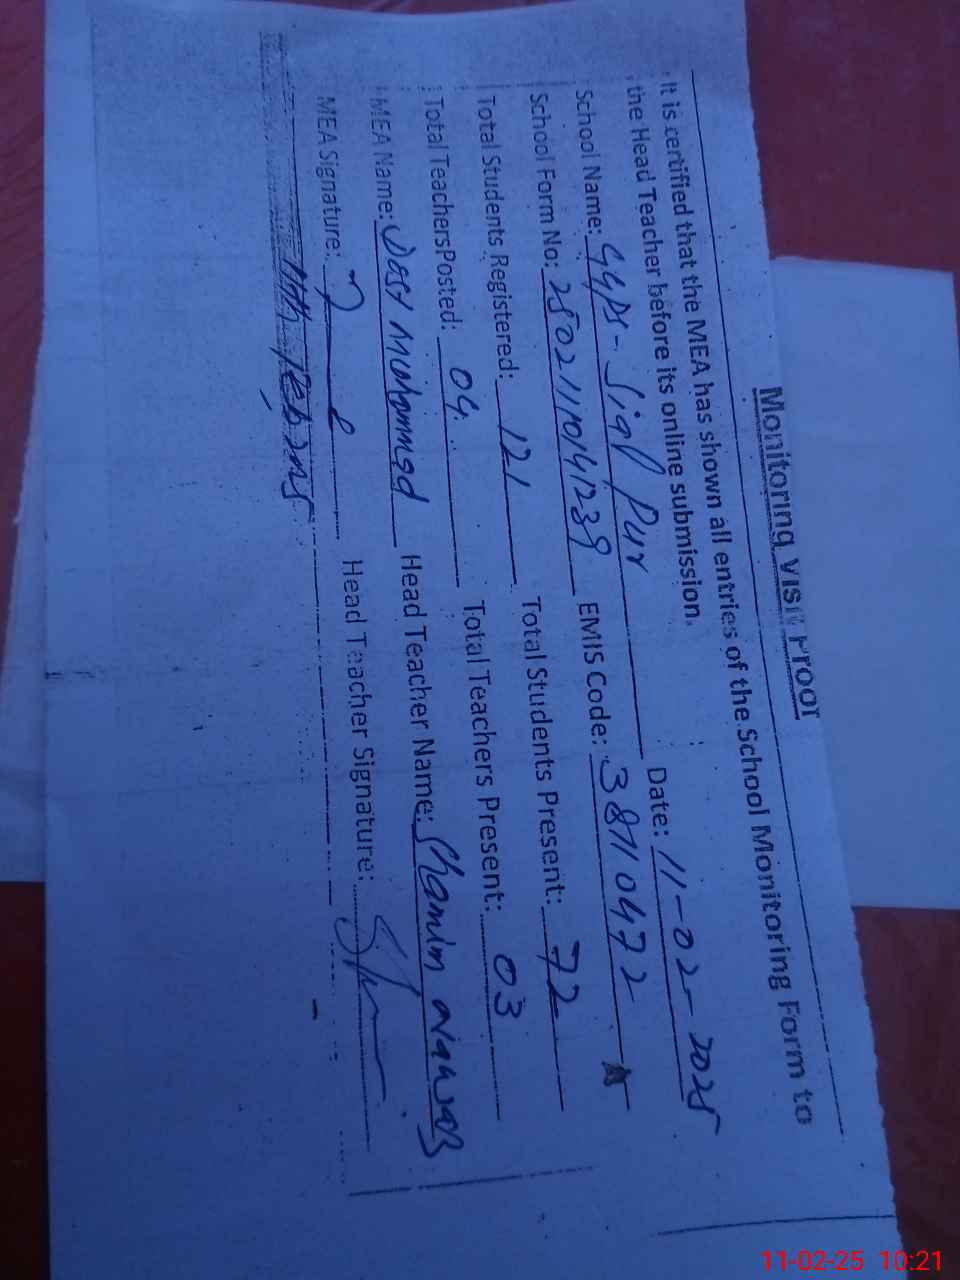 Monitoring Visit Proof
It is certified that the MEA has shown all entries of the School Monitoring Form to
the Head Teacher before its online submission.
School Name: GGPS - Sial Pur Date: 11-02-2025
School Form No: 25021110141239 EMIS Code: 38710472
Total Students Registered: 121 Total Students Present: 72
Total Teachers Posted: 04 Total Teachers Present: 03
MEA Name: Dost Muhammad Head Teacher Name: Shamim Nawaz
MEA Signature: Head Teacher Signature:
11th Feb 2025
11-02-25 10:21